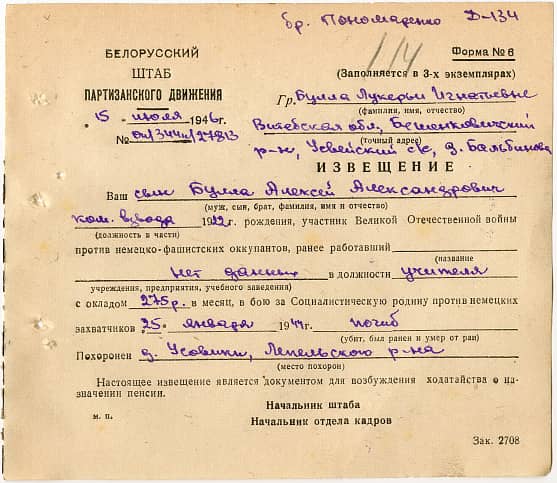 бр. Пономаренко Д-134
114
БЕЛОРУССКИЙ
ШТАБ
ПАРТИЗАНСКОГО ДВИЖЕНИЯ
Форма № 6
(Заполняется в 3-х экземплярах)
„15“ июля 1946 г.
№
Гр. Булла Лукерьи Игнатьевне
(фамилия, имя, отчество)
Витебская обл, Бешенковичский
(точный адрес)
р-н, Усвейский с/с, д. Бальбиново
ИЗВЕЩЕНИЕ
Ваш сын Булла Алексей Александрович
(муж, сын, брат, фамилия, имя и отчество)
ком. взвода 1922 г. рождения, участник Великой Отечественной войны
(должность в части)
против немецко-фашистских оккупантов, ранее работавший
(название
нет данных в должности учителя
учреждения, предприятия, учебного заведения)
с окладом 275 р. в месяц, в бою за Социалистическую родину против немецких
захватчиков „25“ января 1944 г. погиб
(убит, был ранен и умер от ран)
Похоронен д. Усовики, Лепельского р-на
(место похорон)
Настоящее извещение является документом для возбуждения ходатайства о на-
значении пенсии.
Начальник штаба
м. п.
Начальник отдела кадров
Зак. 2708